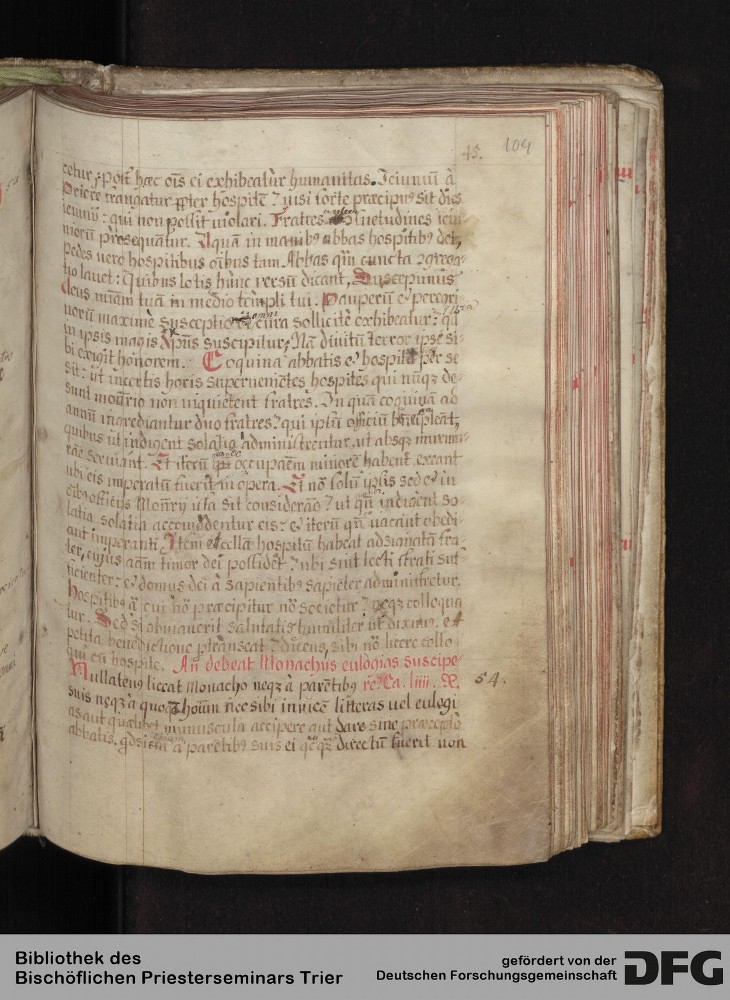 45. 109
cetur; post hæc om̄s ei exhibeatur humanitas. Ieiuniū à
Priore frangatur ꝓpter hospitē? nisi forte præcipuꝰ sit dies
ieiunij: qui non possit uiolari. Fratres ꝯsuetudines ieiu
niorū prosequātur. Aquā in manibꝰ abbas hospitibꝰ det,
pedes uero hospitibus oībus tam Abbas qm̄ cuncta ꝯgrega
tio lauet: Quibus lotis hūnc versū dicant, Suscepimus
deus miām tuā in medio templi tui. Pauperū et peregri
norū maxime susceptio cura sollicitè exhibeatur: qa
in ipsis magis Xp̄us suscipitur; Nā diuitū terror ipse si
bi exigit honorem. Coquina abbatis et hospitū per se
sit: ut incertis horis superuenietes hospites qui nūqȝ de
sunt mon̄rio non inquietent fratres. In quā coquinā ad
annū ingrediantur duo fratres? qui ipsū officiū impleāt;
quibus ut indigent solatia administrentur, ut absqȝ murmu
rāe seruiant. Et iterū occupaēm minorē habent, exeant
ubi eis imperatū fuerit in opera. Et nō solū ipsis sed et in
oībꝰ officijs Mon̄rij ista sit considerāo? ut qn̄ indigent so
latia, solatia accomōdentur eis: et iterū qn̄ uacant obedi
ant imperanti. Item et cellā hospitū habeat adsignatā fra
ter, cujus aām timor dei possidet? ubi sint lecti strati suf
ficienter: et domus dei à sapientibꝰ sapiēter administretur.
Hospitibꝰ aū cui nō præcipitur nō societur? neqȝ colloqua
tur. Sed si obuiauerit salutatis humiliter ut diximꝰ. et
petita benedictione ptranseat? dicens, sibi nō licere collo
qui cū hospite. An debeat Monachus eulogias suscipe
Nullatenꝰ liceat Monacho neqȝ à parētibꝰ re? Ca. liiii. R. 54.
suis neqȝ à quoqȝ hoīm nec sibi inuicē litteras uel eulogi
as aut quælibet munuscula accipere aut dare sine præcepto
abbatis. qdsi etiā à parētibꝰ suis ei qcqȝ directū fuerit non
Bibliothek des
Bischöflichen Priesterseminars Trier
gefördert von der
Deutschen Forschungsgemeinschaft
DFG